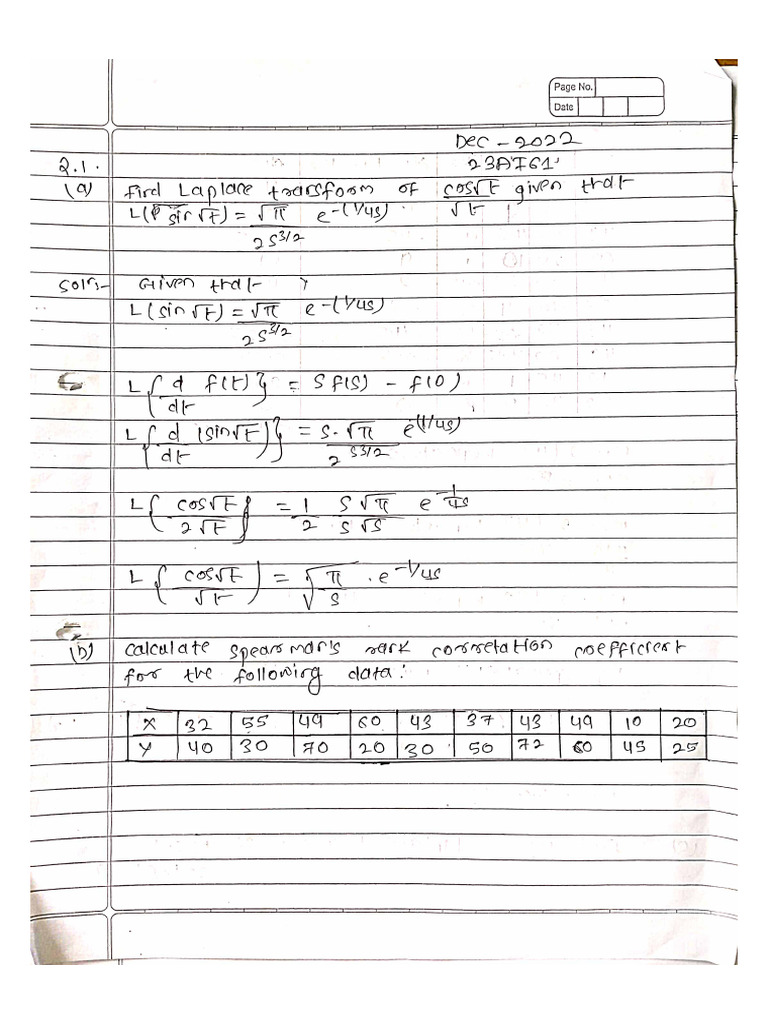 Page No.
Date
Dec - 2022
Q.1.
(a) Find Laplace transform of cos√t/√t given that
L(sin√t) = √π/2s^3/2 e-(1/4s).
Soln:- Given that
L(sin√t) = √π/2s^3/2 e-(1/4s)
L{d/dt f(t)} = S f(s) - f(0)
L{d/dt (sin√t)} = s.√π/2s^3/2 e(1/4s)
L{cos√t/2√t} = 1/2 s√π/s√s e^-1/4s
L{cos√t/√t} = √π/s . e^-1/4s
(b) Calculate Spearman's rank correlation coefficient
for the following data:
X 32 55 49 60 43 37 43 49 10 20
Y 40 30 70 20 30 50 72 60 45 25